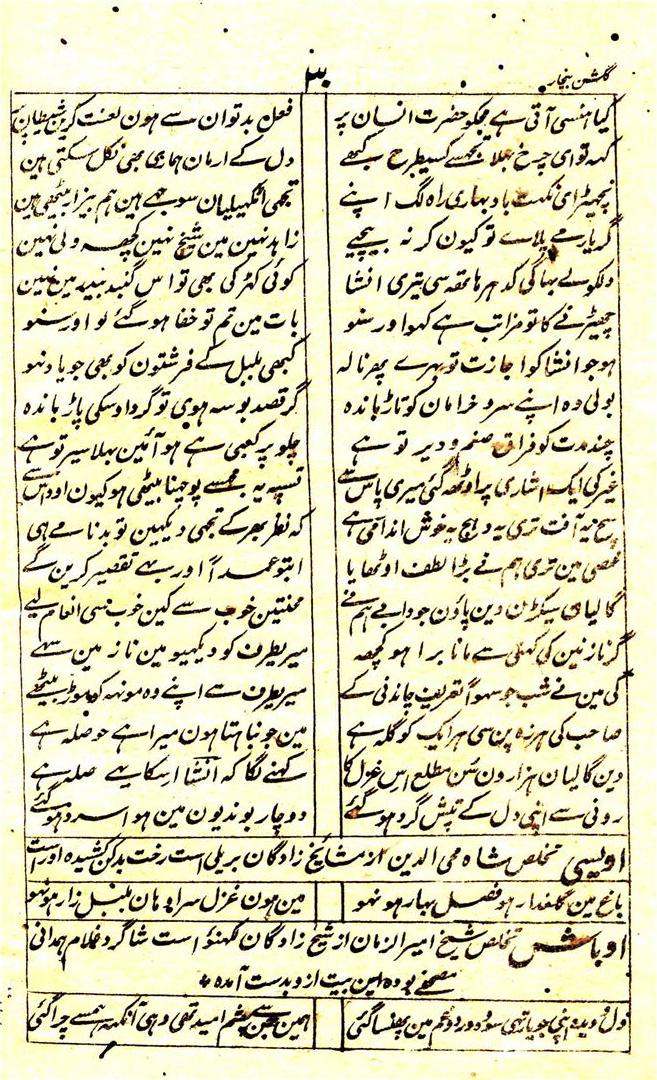 گلشن بیخار
۳۰
کیا ہنسی آتی ہے مجکو حضرت انسان پر فعل بد تو ان سے ہون لعنت کرین شیطان پر
دل کے ارمان ہماری بھی نکل سکتی ہین
نچھیڑ ای نکہت باد بہاری راہ لگ اپنے تجھی اٹکھیلیان سوجھے ہین ہم بیزار بیٹھی ہین
گر یار مے پلاے تو کیون کر نہ پیجیے زاہد نہین مین شیخ نہین کچھہ ولی نہین
کوئی کھڑکی بھی تو اس گنبد بیدر مین نہین
چھیڑنے کا تو مزا تب ہے کہو اور سنو بات مین تم تو خفا ہو گئے لو اور سنو
ہو جو انشا کو اجازت تو بہرے پھر نالہ کبھی بلبل کے فرشتون کو بھی جو یاد نہو
بولی وہ اپنے سرو خرامان کو تاڑ باندہ گر قصد بوسہ ہوی تو گرداوسکی پاڑ باندہ
چند مدت کو فراق صنم و دیر تو ہے چلو پر کعبی ہے ہو آئین بھلا سیر تو ہے
غیر کی ایک اشاری پر اوٹھہ گئی میری پاس سے تسپہ یہ مجھسے پوچہنا بیٹھی ہو کیون اوداس سے
کہ نظر بھر کے تجھی دیکہین تو بدنامے ہی
غصی مین تری ہم نے بڑا لطف اوٹھایا ابتو عمداً اور بھے تقصیر کرین گے
گالیان سیکڑن دین پاؤن جو دابے ہم نے محنتین خوب سے کین خوب سی انعام لیے
گر نازنین کی کہنی سے مانا برا ہو کچھہ میریطرف کو دیکھیو مین نازنین سہے
کی مین نے شب جو سہواً تعریف چاندنی کے میریطرف سے اپنے وہ مونہہ کو موڑ بیٹھے
صاحب کی ہرزہ پن سی ہر ایک کو گلہ ہے مین جو نباہتا ہون میرا ہے حوصلہ ہے
دین گالیان ہزارون سن مطلع اس غزل کا کہنے لگا کہ انشا اسکا یہے صلہ ہے
رونی سے اپنی دل کے تپش گرد ہو گئے دو چار بوندیون مین ہوا سرد ہو گئے
اویسی تخلص شاہ محی الدین از مشائخ زادگان بریلی است رخت بدکن کشیدہ اوراست
باغ مین گلعذار ہو فصل بہار ہو نہو مین ہون غزل سرا وہان بلبل زار ہو نہو
اوباش تخلص شیخ امیر الزمان از شیخ زادگان لکھنؤ است شاگرد غلام ہمدانی
مصحفے بودہ این بیت از و بدست آمدہ
دل و دیدہ اپنی جو یار تہی سو وہ درد و غم مین پھنسا گئی ہمین جن سے چشم امید تھی وہی آنکہہ ہمسے چرا گئی